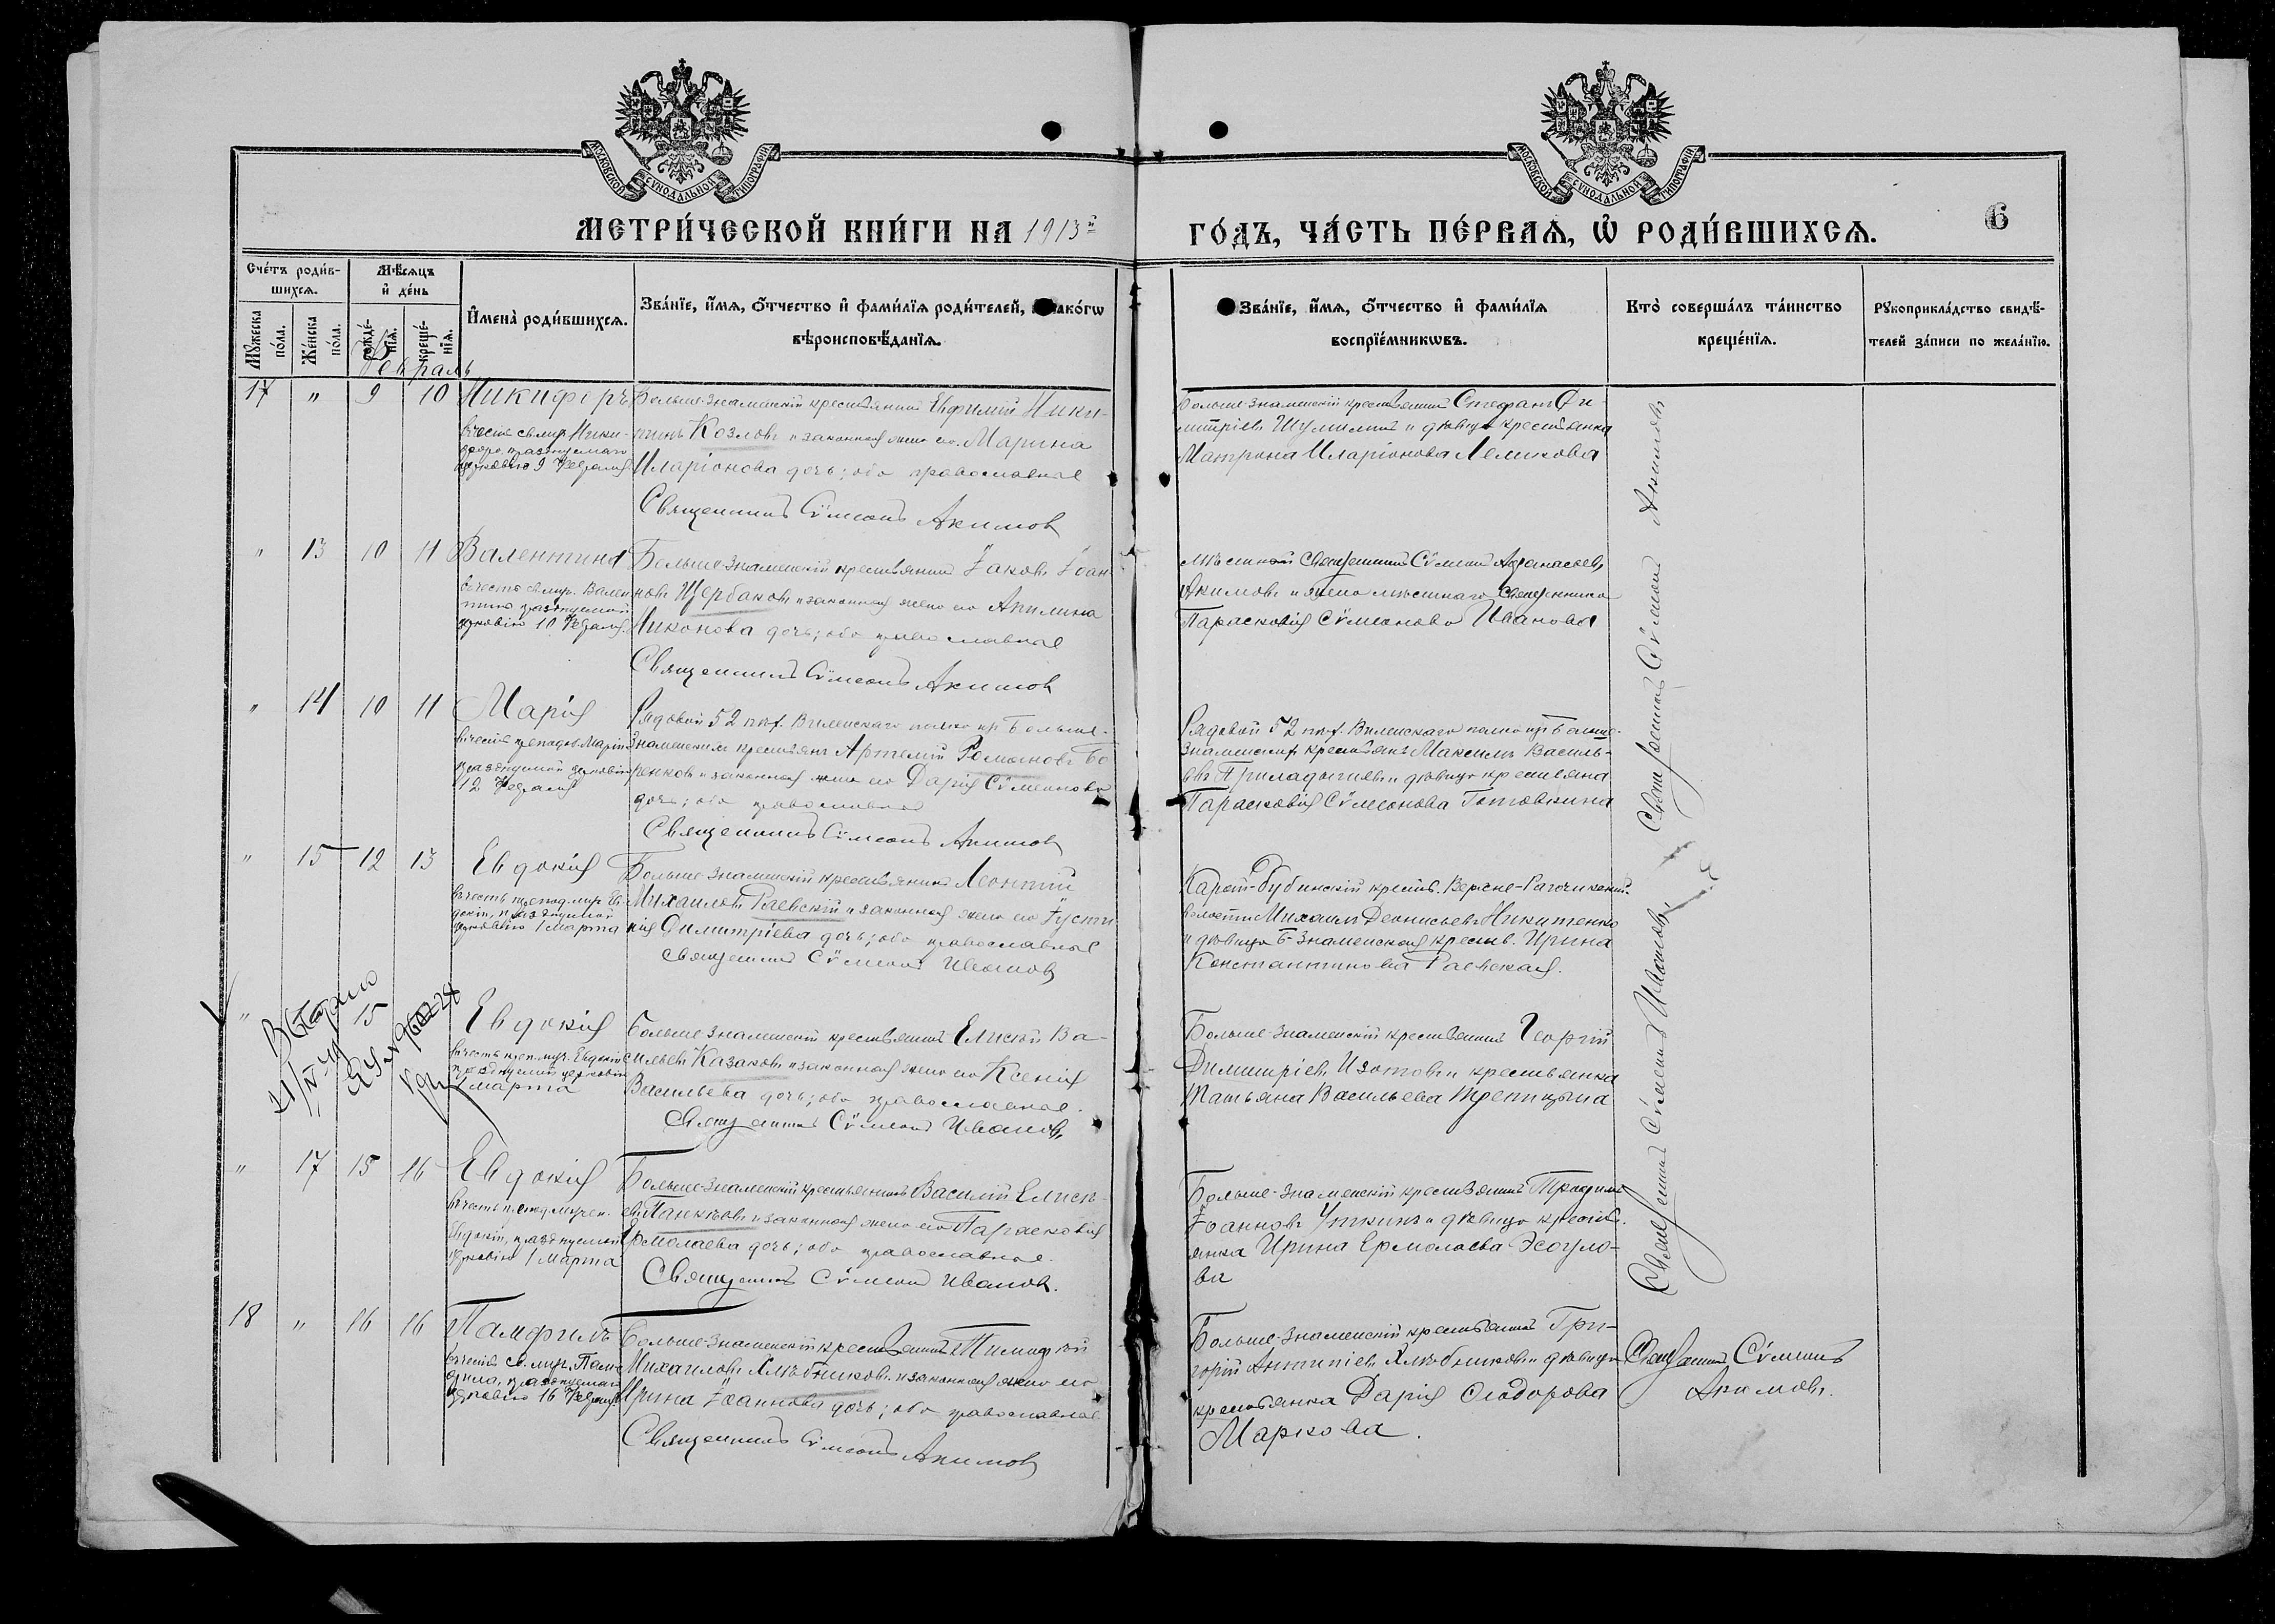 МОСКОВСКОЙ СѴНОДАЛЬНОЙ ТИПОГРАФІИ
МОСКОВСКОЙ СѴНОДАЛЬНОЙ ТИПОГРАФІИ
МЕТРИ́ЧЕСКОЙ КНИ́ГИ НА 1913й
ГО́ДЪ, ЧА́СТЬ ПЕ́РВАѦ, Ѡ҆ РОДИ́ВШИХСѦ.
6
Сче́тъ роди́в-
шихсѧ.
Мѣ́сѧцъ
и҆ де́нь
Мꙋ́жеска
по́ла.
Же́нска
по́ла.
рожде́-
нїѧ.
креще́-
нїѧ.
И҆мена̀ роди́вшихсѧ.
Зва́нїе, и҆́мѧ, ѻ҆́тчество и҆ фами́лїѧ роди́телей, акѡ́гѡ
вѣроисповѣ́данїѧ.
Зва́нїе, и҆́мѧ, ѻ҆́тчество и҆ фами́лїѧ
воспрїе́мникѡвъ.
Кто̀ соверша́лъ та́инство
креще́нїѧ.
Рꙋкоприкла́дство свидѣ́-
телей за́писи по жела́нїю.
Февраль
17 " 9 10 Никифоръ
въ честь св. муч. Ники-
фора, празднуемаго
церковію 9 Февраля
Больше-Знаменскій крестьянинъ Евфимій Ники-
тинъ Козловъ и законная жена его Марина
Иларіонова дочь; оба православные
Священникъ Сѵмеонъ Акимовъ
Больше-Знаменскій крестьянинъ Стефанъ Ди-
митріевъ Шумилинъ и дѣвица крестьянка
Матрона Иларіонова Лемикова
" 13 10 11 Валентина
въ честь св. муч. Вален-
тины празднуемой
церковію 10 Февраля
Больше-Знаменскій крестьянинъ Іаковъ Іоан-
новъ Щербаковъ и законная жена его Акилина
Никонова дочь; оба православные
Священникъ Сѵмеонъ Акимовъ
мѣстный священникъ Сѵмеонъ Аѳанасіевъ
Акимовъ и жена мѣстнаго священника
Параскевія Сѵмеонова Иванова
" 14 10 11 Марія
въ честь преподоб. Маріи
празднуемой церковію
12 Февраля
Рядовой 52 пѣх. Виленскаго полка изъ Больше-
Знаменскихъ крестьянъ Артемій Романовъ Бо
ренковъ и законная жена его Дарія Сѵмеонова
дочь; оба православные
Священникъ Сѵмеонъ Акимовъ
Рядовой 52 пѣх. Виленскаго полка изъ Больше-
Знаменскихъ крестьянъ Максимъ Василь-
евъ и дѣвица крестьянка
Параскевія Сѵмеонова Готовкина
" 15 12 13 Евдокія
въ честь препод. муч. Ев
докіи, празднуемой
церковію 1 Марта
Больше-Знаменскій крестьянинъ Леонтій
Михаиловъ Раевскій и законная жена его Іусти
нія Димитріева дочь; оба православные
священникъ Сѵмеонъ Ивановъ
крестья. Верхне-Рогачикской
волости Михаилъ Діонисьевъ Никитенко
и дѣвица Б-Знаменская крестья. Ирина
Константинова Раевская.
" 15
Выдано
Евдокія
въ честь преп. муч. Евдокіи
празднуемой церковію
1 марта
Больше-Знаменскій крестьянинъ Елисей Ва-
сильевъ Казаковъ и законная жена его Ксенія
Васильева дочь; оба православные.
Священникъ Сѵмеонъ Ивановъ
Больше-Знаменскій крестьянинъ Георгій
Димитріевъ Изотовъ и крестьянка
Татьяна Васильева Трепицына
" 17 15 16 Евдокія
въ честь препод. мучен.
Евдокіи, празднуемой
церковію 1 Марта
Больше-Знаменскій крестьянинъ Василій Елисе-
евъ и законная жена его Параскевія
Ермолаева дочь; оба православные.
Священникъ Сѵмеонъ Ивановъ.
Больше-Знаменскій крестьянинъ Трофимъ
Іоанновъ Уткинъ и дѣвица кресть-
янка Ирина Ермолаева Жогуло-
ва
18 " 16 16 Памфилъ
въ честь св. муч. Пам-
фила, празднуемаго
церковію 16 Февраля
Больше-Знаменскій крестьянинъ Тимофей
Михаиловъ Хлѣбниковъ и законная жена его
Ирина Іоаннова дочь; оба православные
Священникъ Сѵмеонъ Акимовъ
Больше-Знаменскій крестьянинъ Гри-
горій Антипіевъ Хлѣбниковъ и дѣвица
крестьянка Дарія Сіодорова
Маркова.
Священникъ Сѵмеонъ Акимовъ
Священникъ Сѵмеонъ Ивановъ
Священникъ Сѵмеонъ
Акимовъ.